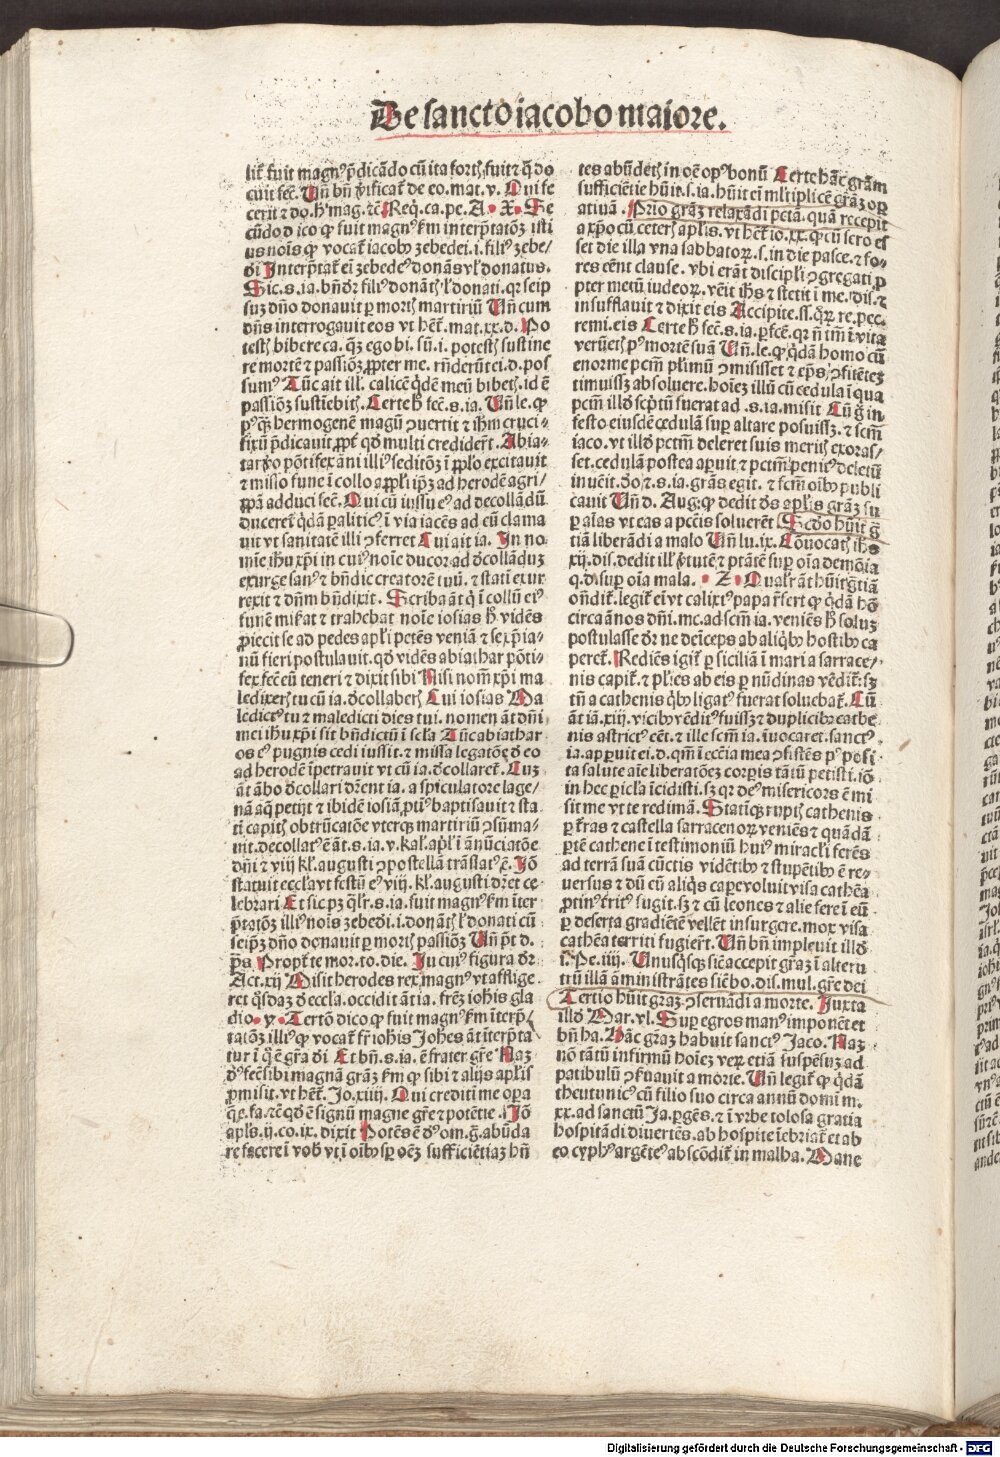 De sancto iacobo maiore.
lit̃. fuit magnꝰ p̃dicãdo cũ ita fortẜ fuit ⁊ q̃ do
cuit fec̃. Uñ bñ v̾ificat̃ de eo. mat. v. Qui fe
cerit ⁊ do. hˀ mag. ⁊c̃ Req̃. ca. pe. A. X. Se
cũdo d ico ꝙ fuit magnꝰ ẜm interp̃tatõꝫ isti
us noĩs ꝙ vocat̃ iacobꝰ zebedei. i. filiꝰ zebe/
dĩ Interp̃tat̃ eĩ zebedeꝰ donãs vł donatus.
Sic. s. ia. bñ dr̃ filiꝰ donãtẜ ł donati. qꝛ seip
suꝫ dño donauit ꝑ mortẜ martiriũ Uñ cum
dñs interrogauit eos vt hẽt̃. mat. xx. d. Po
testẜ bibere ca. q̃ꝫ ego bi. sũ. i. potestẜ sustine
re mortẽ ⁊ passiõꝫ ꝓpter me. rñderũt ei. d. pos
sumꝰ Tũc ait ill̃. calicẽ q̃dẽ meũ bibetẜ. id ẽ
passiõꝫ sustĩebitẜ. Certe h̾ fec̃. s. ia. Uñ le. ꝙ
pꝰꝗ̃ hermogenẽ magũ ↄuertit ⁊ ih̃m cruci/
fixũ p̃dicauit, ꝓpt̃ qđ multi credidert̃. Abia/
targo põtifex ãni illiꝰ seditõꝫ ĩ ꝓp̃lo excitauit
⁊ misso fune ĩ collo ap̃li ip̃ꝫ ad herodẽ agri/
ppã adduci fec̃. Qui cũ iussu eꝰ ad decollãdũ
duceret̃ q̃dã paliticꝰ ĩ via iacẽs ad eũ clama
uit vt sanitatẽ illi ↄferret Cui ait ia. In no/
mĩe ih̃u xp̃i in cuiꝰ noĩe ducor ad d̾collãduꝫ
exurge sanꝰ ⁊ bñdic creatorẽ tuũ. ⁊ stati exur
rexit ⁊ dñm bñdixit. Scriba ãt q̃ ĩ collũ eiꝰ
funẽ mis̃at ⁊ trahebat noĩe iosias h̾ vidẽs
ꝓiecit se ad pedes apłi petẽs veniã ⁊ se xp̃ia/
nũ fieri postulauit. qđ vidẽs abiathar põti/
fex fec̃ eũ teneri ⁊ dixit sibi Nisi nom̃ xp̃i ma
ledixerẜ tu cũ ia. d̾collaberẜ Cui iosias Ma
ledictꝰ tu ⁊ maledicti dies tui. nomen ãt dñi
mei ih̃u xp̃i sit bñdictũ ĩ sc̃ła Tũc abiathar
os eꝰ pugnis cedi iussit. ⁊ missa legatõe d̾ eo
ad herodẽ ĩpetrauit vt cũ ia. d̾collaret̃. Cuꝫ
ãt ãbo d̾collari dr̃ent ia. a spiculatore lage/
nã aq̃ petijt ⁊ ibidẽ iosiã ꝓtiꝰ baptisauit ⁊ sta
ti capitẜ obtrũcatõe vterqꝫ martiriũ ↄsũma/
uit. decollatꝰ ẽ ãt. s. ia. v. kał. apł ĩ ãnũciatõe
dñi ⁊ viij kł. augusti ↄpostellã trãslatꝰ ẽ. Iõ
statuit eccła vt festũ eꝰ viij. kł. augusti dr̃et ce
lebrari Et sic pꝫ qłr. s. ia. fuit magnꝰ ẜm iter
p̃tatõꝫ illiꝰ noĩs zebedei. i. donãtẜ ł donati cũ
seip̃ꝫ dño donauit ꝑ mortẜ passiõꝫ Uñ p̃t d.
p̃s. Propt̃ te mor. to. die. In cuiꝰ figura dr̃
Act. xij Misit herodes rex magnꝰ vt afflige
ret q̃sdaꝫ d̾ eccła. occidit ãt ia. fr̃eꝫ ioh̃is gla
dio. y. Tertõ dico ꝙ fuit magnꝰ ẜm ĩterp̃/
tatõꝫ illiꝰ ꝙ vocat̃ fr̃ ioh̃is Joh̃es ãt ĩterp̃ta
tur ĩ q̃ ẽ gr̃a dĩ Et bñ. s. ia. ẽ frater gr̃e Naꝫ
d̾ꝰ fec̃ sibi magnã gr̃aꝫ ẜm ꝙ sibi ⁊ alijs apłis
ꝓmisit. vt hẽt̃. Jo. xiiij. Qui crediti me opa
q̃ e. fa. ⁊c̃ qđ ẽ signũ magne gr̃e ⁊ potẽtie. Iõ
apłs. ij. co. ix. dixit Potẽs ẽ d̾ꝰ om. g̃. abũda
re facere ĩ vob̾ vt ĩ oĩbꝰ sp oẽꝫ sufficiẽtiaꝫ hñ
tes abũdetẜ in oẽ opꝰ bonũ Certe hãc gr̃am
sufficiẽtie hũit. s. ia. hũit eĩ mltiplicẽ gr̃aꝫ op
atiuã. Prio gr̃aꝫ relaxãdi pctã. quã recepit
a xp̃o cũ ceterẜ apłis. vt hẽt̃ io. xx. ꝙ cũ sero es
set die illa vna sabbatoꝝ. s. in die pasce. ⁊ fo/
res eẽnt clause. vbi erãt discipłi ↄgregati ꝓ
pter metũ iudeoꝝ. vẽit ih̃s ⁊ stetit ĩ me. dis. ⁊
insufflauit ⁊ dixit eis Accipite. ss. q̃ꝝ re. pec.
remi. eis Certe h̾ fec̃. s. ia. ꝑfcẽ. qꝛ ñ tm̃ ĩ vita
verũetẜ pꝰ mortẽ suã Uñ. le. ꝙ q̃dã homo cũ
enorme pctm̃ p̃mũ ↄmisisset ⁊ ep̃s. ↄfitẽteꝫ
timuissꝫ absoluere. hoĩeꝫ illũ cũ cedula ĩ qua
pctm̃ illđ scp̃tũ fuerat ad. s. ia. misit Cũ g̃ in
festo eiusdẽ cedulã super altare posuissꝫ. ⁊ scm̃
iaco. vt illđ pctm̃ deleret suis meritẜ exoras/
set. cedulã postea apuit ⁊ pctm̃ penitꝰ deletũ
inuẽit. d̾o ⁊. s. ia. gr̃as egit. ⁊ fcm̃ oĩbꝰ publi
cauit Uñ d. Aug. ꝙ dedit d̾s apłis gr̃aꝫ su
ꝑ aĩas vt eas a pctĩs soluerẽt Scđo hũit g̃
tiã liberãdi a malo Uñ lu. ix. Cõuocatẜ ih̃s
xij. dis. dedit ill̃ v̾tutẽ ⁊ ptãtẽ sup oĩa demõia
q. d. sup oĩa mala. Z. Qualr̃ ãt hũit g̃tiã
oñdit̃. legit̃ eĩ vt calixtꝰ papa r̃fert ꝙ q̃dã hõ
circa ãnos dñi. mc. ad scm̃ ia. veniẽs h̾ soluꝫ
postulasse dr̃ ne deĩceps ab aliq̃bꝰ hostibꝰ ca
peret̃. Rediẽs igit̃ ꝑ siciliã ĩ mari a sarrace/
nis capit̃. ⁊ p̃lies ab eis ꝑ nũdinas vẽdit̃. sꝫ
tñ a cathenis q̃bꝰ ligatꝰ fuerat soluebat̃. Cũ
ãt iã. xiij. vicibꝰ vẽditꝰ fuissꝫ ⁊ duplicibꝰ cathe
nis astrictꝰ eẽt. ⁊ ille scm̃ ia. ĩuocaret. sanctꝰ
ia. apparuit ei. d. qm̃ ĩ eccĩa mea ↄsistẽs pꝰ posi
ta salute aĩe liberatõeꝫ corpis tãtũ petisti. iõ
in hec picła ĩcidisti. sꝫ qꝛ deꝰ misericors ẽ mi
sit me vt te redimã. Statiqꝫ ruptẜ cathenis
ꝑ t̃ras ⁊ castella sarracenoꝝ veniẽs ⁊ quãdã
ꝑtẽ cathene ĩ testimoniũ huiꝰ miracłi ferẽs
ad terrã suã cũctis vidẽtibꝰ ⁊ stupẽtibꝰ ẽ re/
uersus ⁊ dũ cũ aliq̃s capevoluit visa cathẽa
ꝓtinꝰ t̃ritꝰ fugit. sꝫ ⁊ cũ leones ⁊ alie fere ĩ eũ
ꝑ deserta gradiẽtẽ vellẽt insurgere. mox visa
cathẽa territi fugiert̃. Uñ bñ impleuit illđ
ĩ. Pe. iiij. Unusq̃sqꝫ sic̃ accepit gr̃aꝫ ĩ alteru
trũ illã ãministrãtes sic̃ bo. dis. mul. gr̃e dei
Tertio hũit gr̃aꝫ ↄseruãdi a morte. Iuxta
illđ Mar. vl. Super egros manꝰ imponẽt et
bñ ha. Hãc gr̃aꝫ habuit sanctꝰ Jaco. Naꝫ
nõ tãtũ infirmũ hoĩeꝫ veꝝ etiã suspẽsuꝫ ad
patibulũ ↄẜuauit a morte. Uñ legit̃ ꝙ q̃dã
theutunicꝰ cũ filio suo circa annũ domi m.
xx. ad sanctũ Ja. pgẽs. ⁊ ĩ vrbe tolosa gratia
hospitãdi diuertẽs. ab hospite ĩebriat̃ et ab
eo cyphꝰ argẽteꝰ abscõdit̃ in malha. Mane
Digitalisierung gefördert durch die Deutsche Forschungsgemeinschaft - DFG